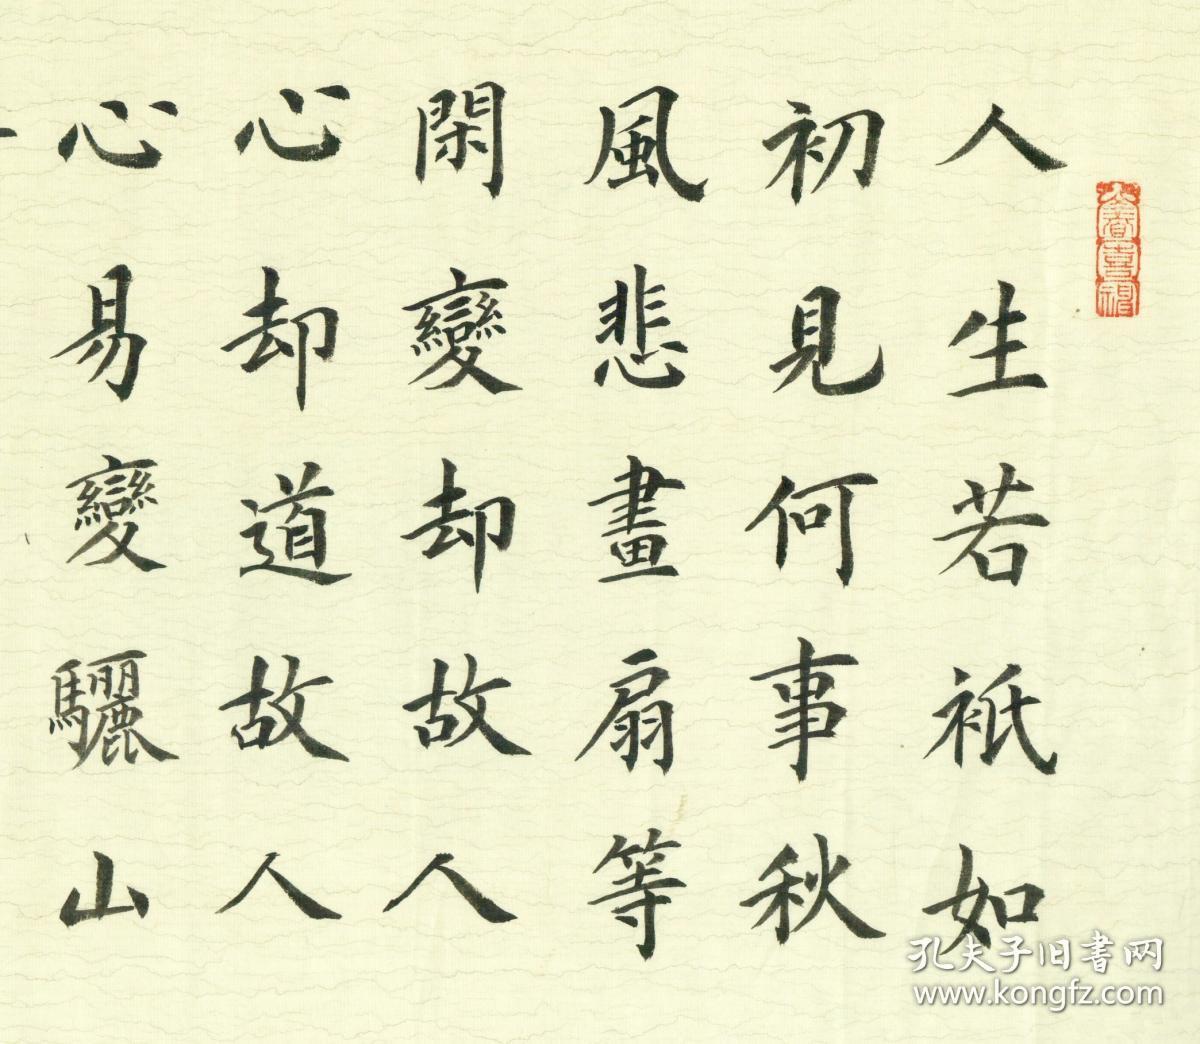 人生若祇如
初見何事秋
風悲畫扇等
閑變却故人
心却道故人
心易變驪山
孔夫子旧書网
www.kongfz.com